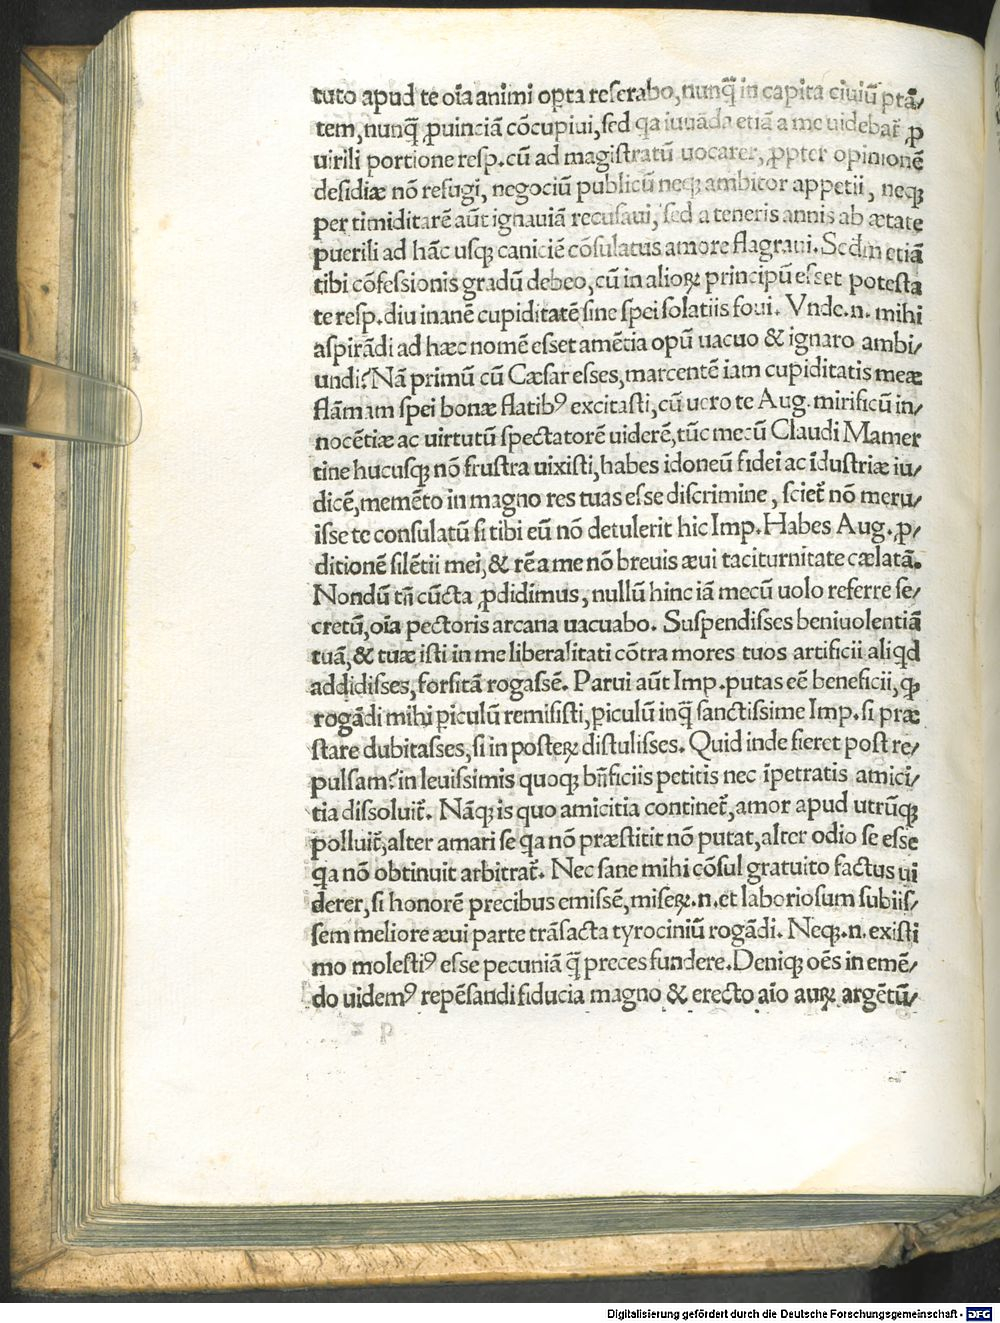 tuto apud te oīa animi opta reſerabo,nunq̃ in capita ciuiū ptā/
tem,nunq̃ ꝓuinciā cōcupiui,ſed qa iuuāda etiā a me uidebat̃ ꝓ
uirili portione reſp.cū ad magiſtratū uocarer,ꝓpter opinionē
deſidiæ nō refugi, negociū publicū neqꝫ ambitor appetii, neqꝫ
per timiditatē aūt ignauiā recuſaui, ſed a teneris annis ab ætate
puerili ad hāc uſqꝫ caniciē cōſulatus amore flagraui. Sedm etiā
tibi cōfeſſionis gradū debeo,cū in alioꝝ principū eſſet poteſta
te reſp.diu inanē cupiditatē ſine ſpei ſolatiis foui. Vnde.n. mihi
aſpirādi ad hæc nomē eſſet amētia opū uacuo & ignaro ambi/
undi?Nā primū cū Cæſar eſſes,marcentē iam cupiditatis meæ
flāmam ſpei bonæ flatibꝰ excitaſti,cū uero te Aug. mirificū in/
nocētiæ ac uirtutū ſpectatorē uiderē,tūc mecū Claudi Mamer
tine hucuſqꝫ nō fruſtra uixiſti,habes idoneū fidei ac īduſtriæ iu/
dicē,memēto in magno res tuas eſſe diſcrimine, ſciet̃ nō meru/
iſſe te conſulatū ſi tibi eū nō detulerit hic Imp.Habes Aug.,ꝓ/
ditionē ſilētii mei,& rē a me nō breuis æui taciturnitate cælatā.
Nondū tñ cūcta ꝓdidimus, nullū hinc iā mecū uolo referre ſe/
cretū,oīa pectoris arcana uacuabo. Suſpendiſſes beniuolentiā
tuā,& tuæ iſti in me liberalitati cōtra mores tuos artificii aliqd
addidiſſes,forſitā rogaſſē. Parui aūt Imp.putas eē beneficii, ꝙ
rogādi mihi piculū remiſiſti,piculū inq̃ ſanctiſſime Imp.ſi præ
ſtare dubitaſſes,ſi in poſteꝝ diſtuliſſes. Quid inde fieret poſt re/
pulſam?in leuiſſimis quoqꝫ bñficiis petitis nec īpetratis amici/
tia diſſoluit̃. Nāqꝫ is quo amicitia continet̃,amor apud utrūqꝫ
polluit̃,alter amari ſe qa nō præſtitit nō putat,alter odio ſe eſſe
qa nō obtinuit arbitrat̃. Nec ſane mihi cōſul gratuito factus ui
derer,ſi honorē precibus emiſſē,miſeꝝ.n.et laborioſum ſubiiſ/
ſem meliore æui parte trāſacta tyrociniū rogādi. Neqꝫ.n. exiſti
mo moleſtiꝰ eſſe pecuniā q̃ preces fundere.Deniqꝫ oēs in emē/
do uidemꝰ repēſandi fiducia magno & erecto aīo auꝝ argētū/
Digitalisierung gefördert durch die Deutsche Forschungsgemeinschaft - DFG